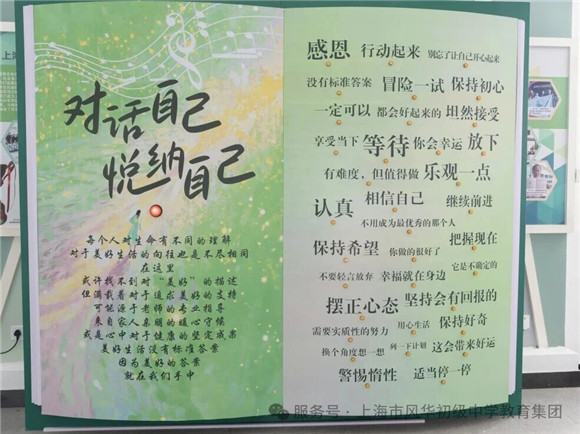 对话自己
悦纳自己
每个人对生命有不同的理解
对于美好生活的向往也是不尽相同
在这里
或许找不到对“美好”的描述
但满载着对于追求美好的支持
可能源于老师的专业指导
来自家人亲朋的暖心守候
或是心中对于健康的坚定成果
美好生活没有标准答案
因为美好的答案
就在我们手中
感恩 行动起来 别忘了让自己开心起来
没有标准答案 冒险一试 保持初心
一定可以 都会好起来的 坦然接受
享受当下 等待 你会幸运 放下
有难度，但值得做 乐观一点
认真 相信自己 继续前进
不用成为最优秀的那个人
保持希望 你做的很好了 把握现在
不要轻言放弃 幸福就在身边 它是不确定的
摆正心态 坚持会有回报的
需要实质性的努力 用心生活 保持好奇
换个角度想一想 列一下计划 这会带来好运
警惕惰性 适当停一停
服务号·上海市风华初级中学教育集团